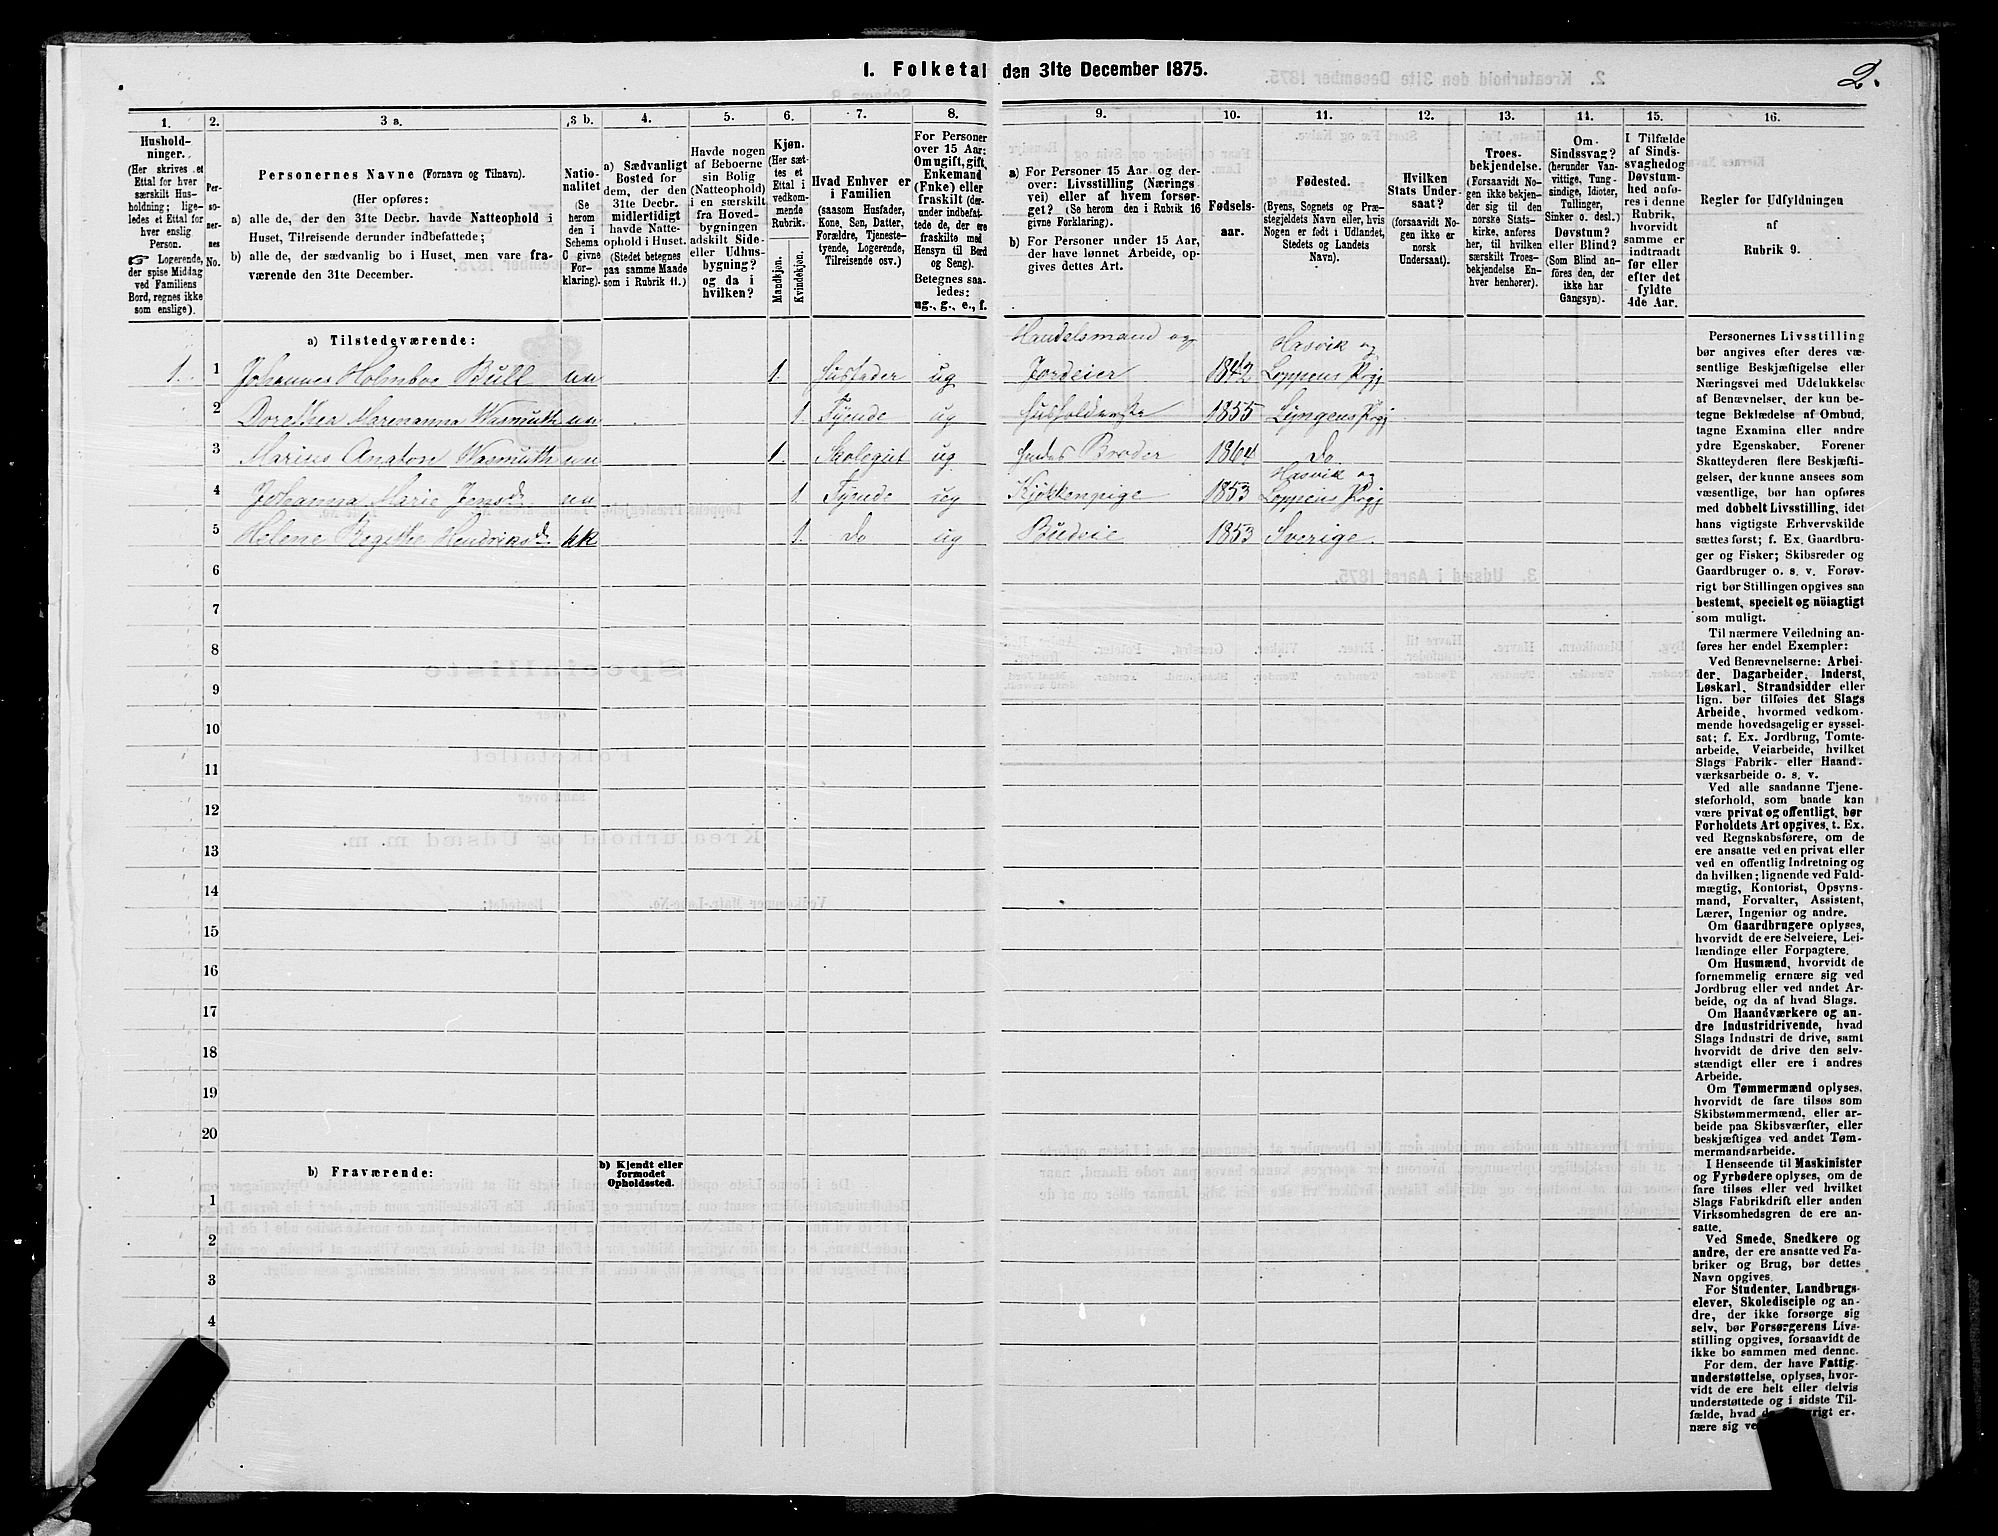 1. Folketal den 31te December 1875.
2.
1.
Hushold-
ninger.
(Her skrives et
Ettal for hver
særskilt Hus-
holdning; lige-
ledes et Ettal for
hver enslig
Person.
☞ Logerende,
der spise Middag
ved Familiens
Bord, regnes ikke
som enslige).
2.
Per-
so-
ner-
nes
No.
3 a.
Personernes Navne (Fornavn og Tilnavn).
(Her opføres:
a) alle de, der den 31te Decbr. havde Natteophold i
Huset, Tilreisende derunder indbefattede;
b) alle de, der sædvanlig bo i Huset, men vare fra-
værende den 31te December.
3 b.
Natio-
nalitet
(Se
herom
den i
Schema
C givne
For-
klaring).
4.
a) Sædvanligt
Bosted for
dem, der den
31te Decbr.
midlertidigt
havde Natte-
ophold i Huset.
(Stedet betegnes
paa samme Maade
som i Rubrik 11.)
5.
Havde nogen
af Beboerne
sin Bolig
(Natteophold)
i en særskilt
fra Hoved-
bygningen
adskilt Side-
eller Udhus-
bygning?
og da i
hvilken?
6.
Kjøn.
(Her sæt-
tes et
Ettal i
vedkom-
mende
Rubrik.
Mandkjøn.
Kvindekjøn.
7.
Hvad Enhver er
i Familien
(saasom Husfader,
Kone, Søn, Datter,
Forældre, Tjeneste-
tyende, Logerende,
Tilreisende osv.)
8.
For Personer
over 15 Aar:
Om ugift, gift,
Enkemand
(Enke) eller
fraskilt (der-
under indbefat-
tede de, der ere
fraskilte med
Hensyn til Bord
og Seng).
Betegnes saa-
ledes:
ug., g., e., f.
9.
a) For Personer 15 Aar og der-
over: Livsstilling (Nærings-
vei) eller af hvem forsør-
get? (Se herom den i Rubrik 16
givne Forklaring).
b) For Personer under 15 Aar,
der have lønnet Arbeide, op-
gives dettes Art.
10.
Fødsels-
aar.
11.
Fødested.
(Byens, Sognets og Præ-
stegjeldets Navn eller, hvis
Nogen er født i Udlandet,
Stedets og Landets
Navn).
12.
Hvilken
Stats Under-
saat?
(forsaavidt No-
gen ikke er
norsk
Undersaat).
13.
Troes-
bekjendelse.
(Forsaavidt No-
gen ikke bekjen-
der sig til den
norske Stats-
kirke, anføres
her, til hvilken
særskilt Troes-
bekjendelse En-
hver henhører).
14.
Om
Sindssvag?
(herunder Van-
vittige, Tung-
sindige, Idioter,
Tullinger,
Sinker o. desl.)
Døvstum?
eller Blind?
(Som Blind an-
føres den, der
ikke har
Gangsyn).
15.
I Tilfælde
af Sinds-
svaghed og
Døvstum-
hed anfø-
res i denne
Rubrik,
hvorvidt
samme er
indtraadt
før eller
efter det
fyldte
4de Aar.
16.
Regler for Udfyldningen
af
Rubrik 9.
a) Tilstedeværende:
1. 1 Johannes Holmboe Bull nn 1. Husfader ug Handelsmand og Jordeier 1842 Hasvik og Loppens Prgj
2 Dorethea Marenanna Wasmuth nn 1 Tyende ug Husholderske 1855 Lyngens Prgj
3 Marius Anaton Wasmuth nn 1. Skolegut ug Hendes Broder 1864 Do
4 Johanna Marie Jensd. nn 1 Tyende ug Kjøkkenpige 1853 Hasvik og Loppens Prgj
5 Helene Regithe Hendriksd. kk 1. Do ug Budeie 1853 Sverige.
6
7
8
9
10
11
12
13
14
15
16
17
18
19
20
b) Fraværende:
b) Kjendt eller
formodet
Opholdssted.
1
2
3
4
6
Personernes Livsstilling
bør angives efter deres væ-
sentlige Beskjæftigelse eller
Næringsvei med Udelukkelse
af Benævnelser, der kun be-
tegne Beklædelse af Ombud,
tagne Examina eller andre
ydre Egenskaber. Forener
Skatteyderen flere Beskjæfti-
gelser, der kunne ansees som
væsentlige, bør han opføres
med dobbelt Livsstilling, idet
hans vigtigste Erhvervskilde
sættes først; f. Ex. Gaardbru-
ger og Fisker; Skibsreder og
Gaardbruger o. s. v. Forøv-
rigt bør Stillingen opgives saa
bestemt, specielt og nöiagtigt
som muligt.
Til nærmere Veiledning an-
føres her endel Exempler:
Ved Benævnelserne: Arbei-
der, Dagarbeider, Inderst,
Løskarl, Strandsidder eller
lign. bør tilføies det Slags
Arbeide, hvormed vedkom-
mende hovedsagelig er syssel-
sat; f. Ex. Jordbrug, Tomte-
arbeide, Veiarbeide, hvilket
Slags Fabrik- eller Haand-
værksarbeide o. s. v.
Ved alle saadanne Tjene-
steforhold, som baade kan
være privat og offentligt, bør
Forholdets Art opgives, t. Ex.
ved Regnskabsførere, om de
ere ansatte ved en privat eller
ved en offentlig Indretning og
da hvilken; lignende ved Fuld-
mægtig, Kontorist, Opsyns-
mand, Forvalter, Assistent,
Lærer, Ingeniør og andre.
Om Gaardbrugere oplyses,
hvorvidt de ere Selveiere, Lei-
lændinge eller Forpagtere.
Om Husmænd, hvorvidt de
fornemmelig ernære sig ved
Jordbrug eller ved andet Ar-
beide, og da af hvad Slags.
Om Haandværkere og an-
dre Industridrivende, hvad
Slags Industri de drive, samt
hvorvidt de drive den selv-
stændigt eller ere i andres
Arbeide.
Om Tømmermænd oplyses,
hvorvidt de fare tilsøs som
Skibstømmermænd, eller ar-
beide paa Skibsværfter, eller
beskjæftiges ved andet Tøm-
mermandsarbeide.
I Henseende til Maskinister
og Fyrbødere oplyses, om de
fare tilsøs eller ved hvilket
Slags Fabrikdrift eller anden
Virksomhedsgren de ere an-
satte.
Ved Smede, Snedkere og
andre, der ere ansatte ved Fa-
briker og Brug, bør dettes
Navn opgives.
For Studenter, Landbrugs-
elever, Skoledisciple og an-
dre, der ikke forsørge sig
selv, bør Forsørgerens Livs-
stilling opgives, forsaavidt de
ikke bo sammen med denne.
For dem, der have Fattig-
understøttelse, oplyses, hvor-
vidt de ere helt eller delvis
understøttede og i sidste Til-
fælde, hvad de øvrigt er-
nære sig ve